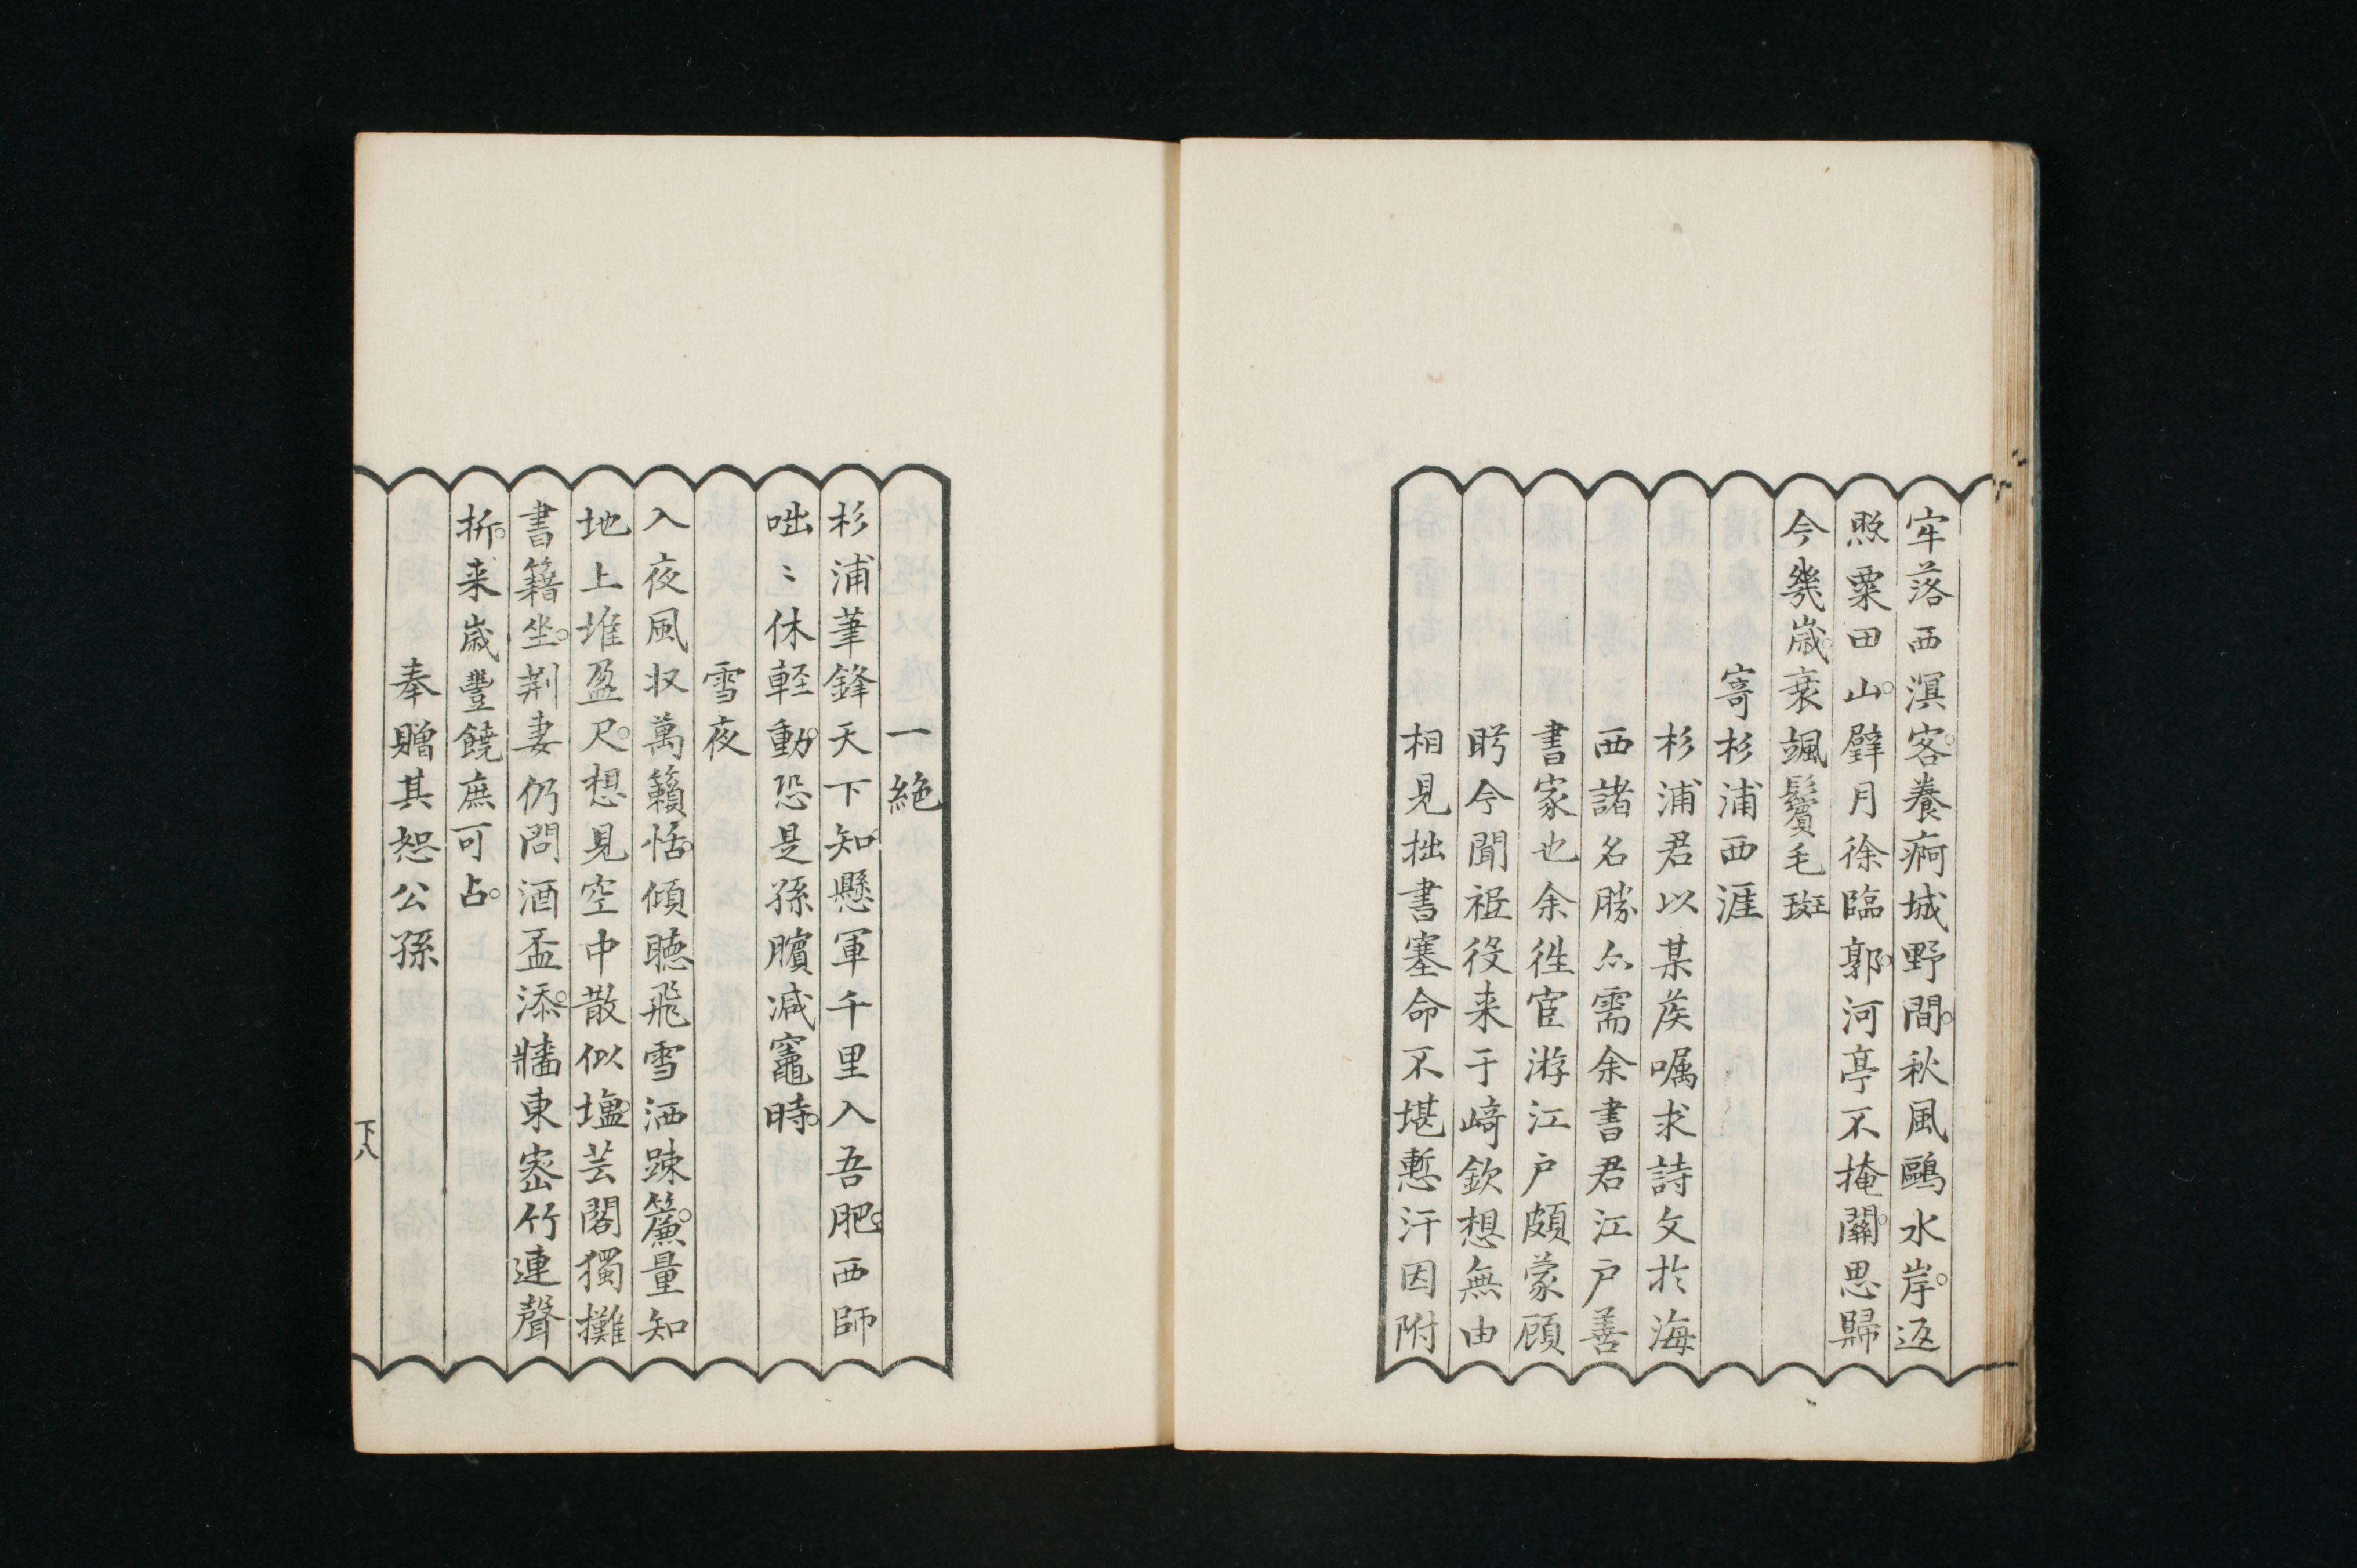 牢落西溟客。養痾城野間。秋風鷗水岸。返
照粟田山。壁月徐臨郭。河亭不掩關。思歸
今幾歳。衰颯鬢毛斑
寄杉浦西涯
杉浦君以某侯嘱求詩文於海
西諸名勝亦需余書君江戸善
書家也余徃宦游江戸頗蒙顧
眄今聞祗役来于崎欽想無由
相見拙書塞命不堪慙汗因附
一絶
杉浦筆鋒天下知。懸軍千里入吾肥。西師
咄〻休軽動。恐是孫臏減竈時。
雪夜
入夜風収萬籟恬。傾聴飛雪洒踈簾。量知
地上堆盈尺。想見空中散似塩。芸閣獨攤
書籍坐。荆妻仍問酒盃添。牆東密竹連聲
折。来歳豐饒庶可占。
奉贈其恕公孫
下八